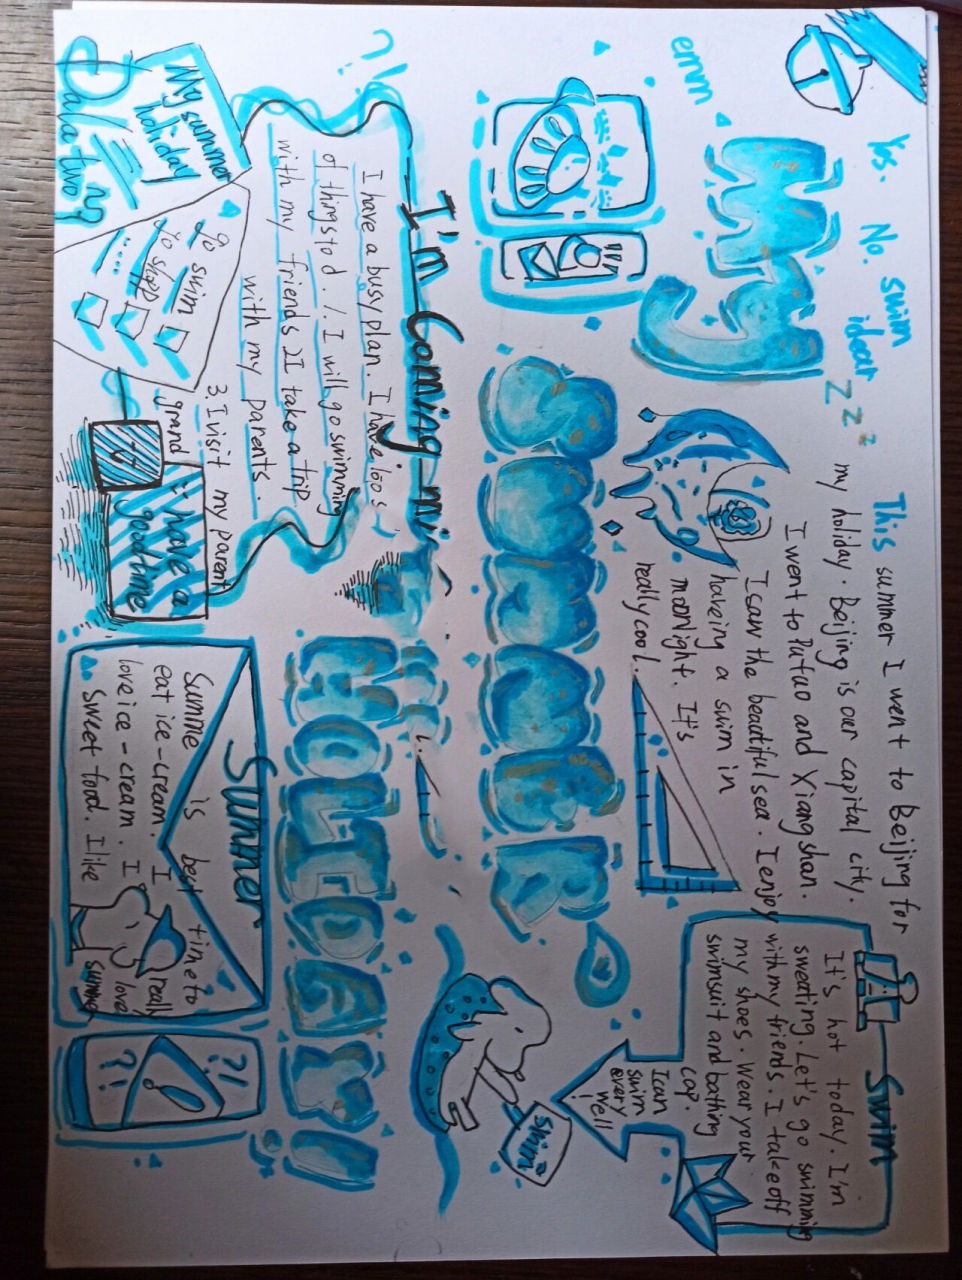 Yes. No. swim
idear
emm
z z z
My
SUMMER
HOLIDAY!
This summer I went to Beijing for
my holiday. Beijing is our capital city.
I went to Putuo and Xiangshan.
I caw the beautiful sea. I enjoy
haveing a swim in
moonlight. It's
really cool.
Swim
It's hot today. I'm
sweating. Let's go swimming
with my friends. I take off
my shoes. Wear your
swimsuit and bathing
cap.
I can
swim
very
well
!
swim
I'm Coming
I have a busy plan. I have
of things to d. 1. I will go swimming
with my friends 2I take a trip
with my parents.
3. I visit my parent
grand
My summer
holiday
go swim
go shop
.....
have a
good time
Summer
Summe is best time to
eat ice-cream. I really
love ice-cream. I love
sweet food. I like
summer
?!
?!